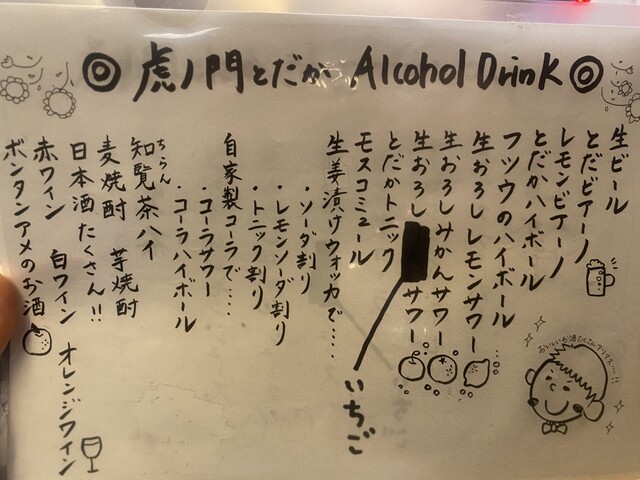 ◎ 虎ノ門とだか Alcohol Drink ◎
生ビール
とだビアーノ
レモンビアーノ
とだかハイボール
フツウのハイボール
生おろしレモンサワー
生おろしみかんサワー
生おろし サワー
いちご
とだかトニック
モスコミュール
生姜漬けウォッカで····
・ソーダ割り
・レモンソーダ割り
・トニック割り
自家製コーラで····
・コーラサワー
・コーラハイボール
ちらん
知覧茶ハイ
麦焼酎 芋焼酎
日本酒たくさん!!
赤ワイン 白ワイン オレンジワイン
ボンタンアメのお酒